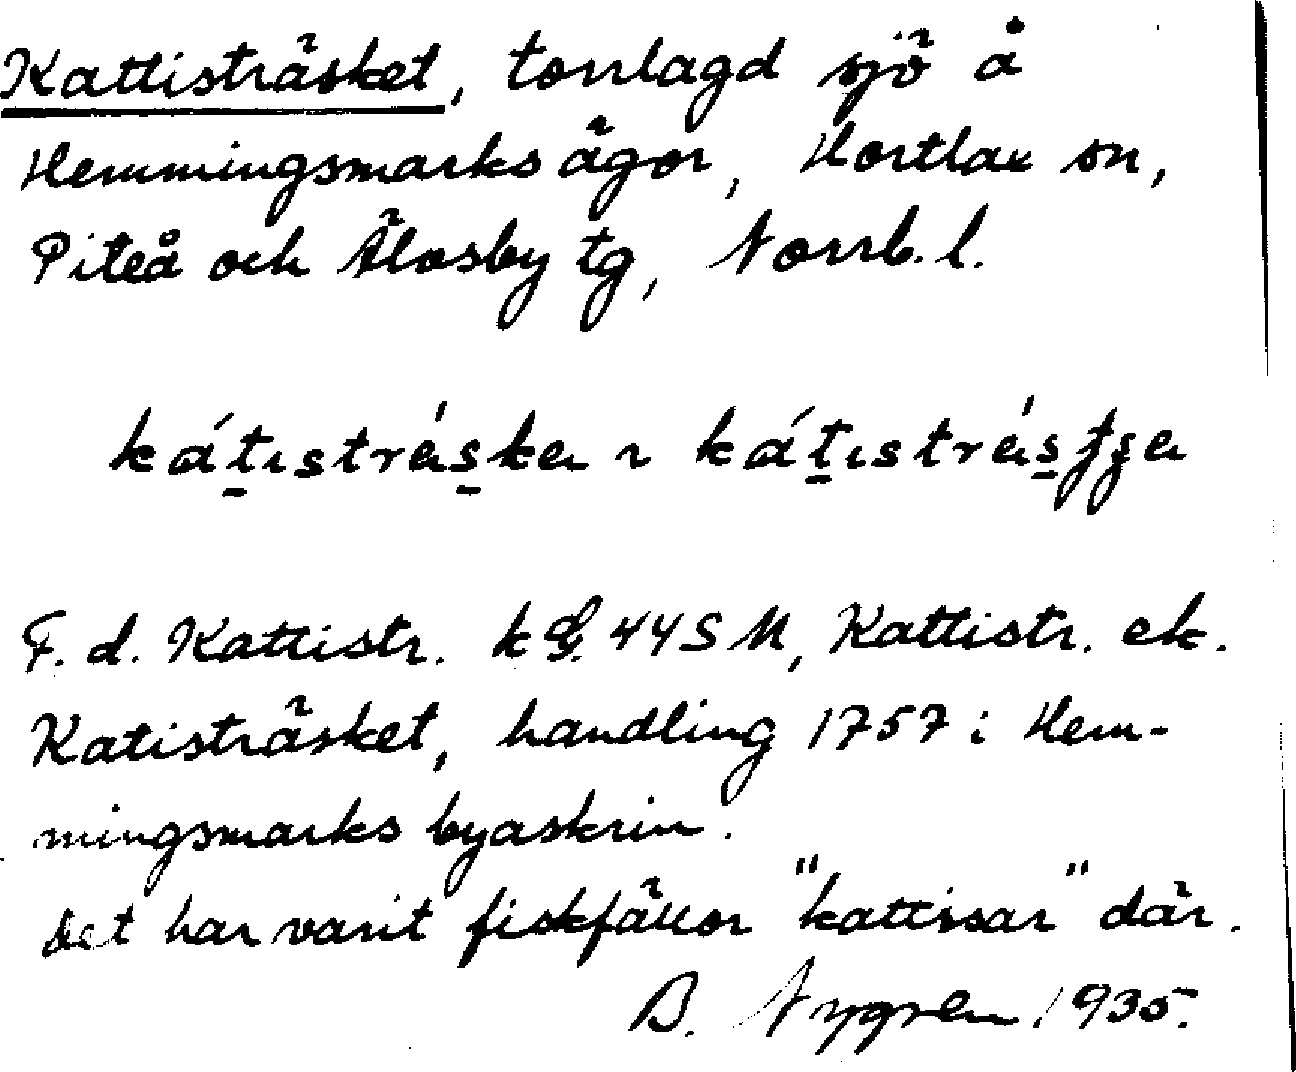 Kattisträsket, torrlagd sjö å
Hemmingsmarks ägor, Hortlax sn,
Piteå och Älvsby tg, Norrb. l.
kátistrǽska ı kátistrǽsʈʂa
F. d. Kattistr. k 445 M, Kattistr. ek.
Katisträsket, handling 1757 i Hem-
mingsmarks byaskrin.
Det har varit fiskfällor "kattisar" där.
B. Nygren 1935.